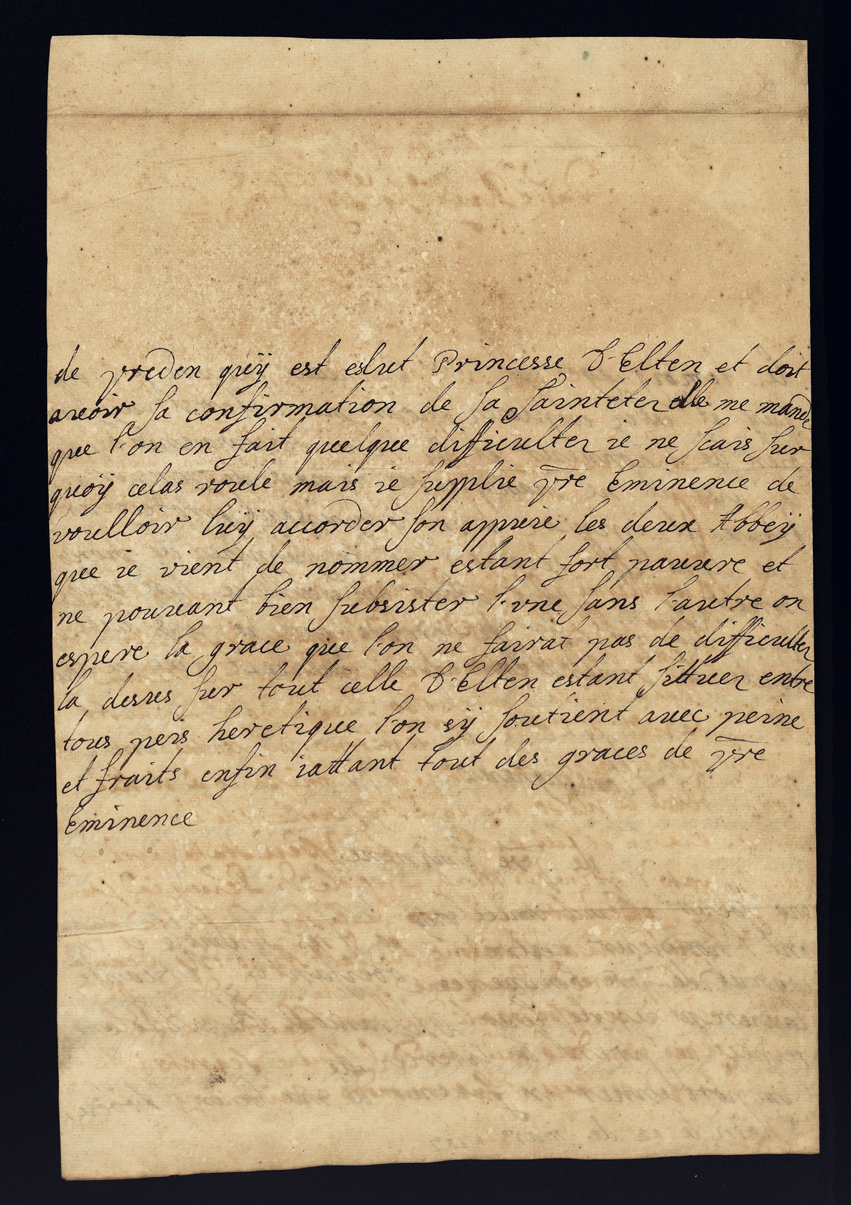 de vreden quÿ est eslut Princesse D'Elten et doit
avoir sa confirmation de sa Sainteter elle me mande
que l'on en fait quelque difficulter ie ne scais sur
quoÿ celas roule mais ie supplie vre Eminence de
voulloir luÿ accorder son appuie les deux Abbeÿ
que ie vient de nommer estant fort pauvre et
ne pouvant bien subsister l'vne sans l'autre on
espere la grace que l'on ne fairat pas de difficulter
la desus sur tout celle D'Elten estant sittuer entre
tous peis heretique l'on sÿ soutient avec peine
et fraits enfin iattant tout des graces de vre
Eminence